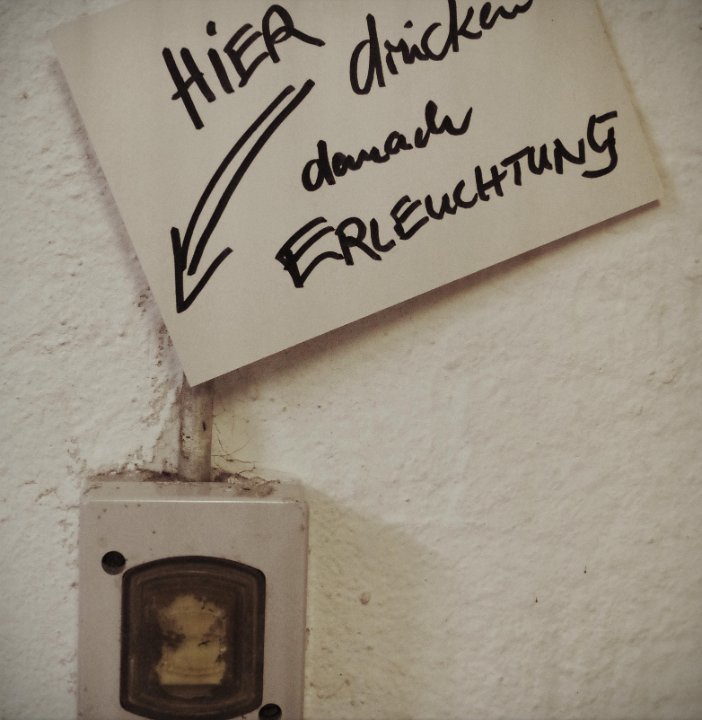 HIER drücken
danach
ERLEUCHTUNG